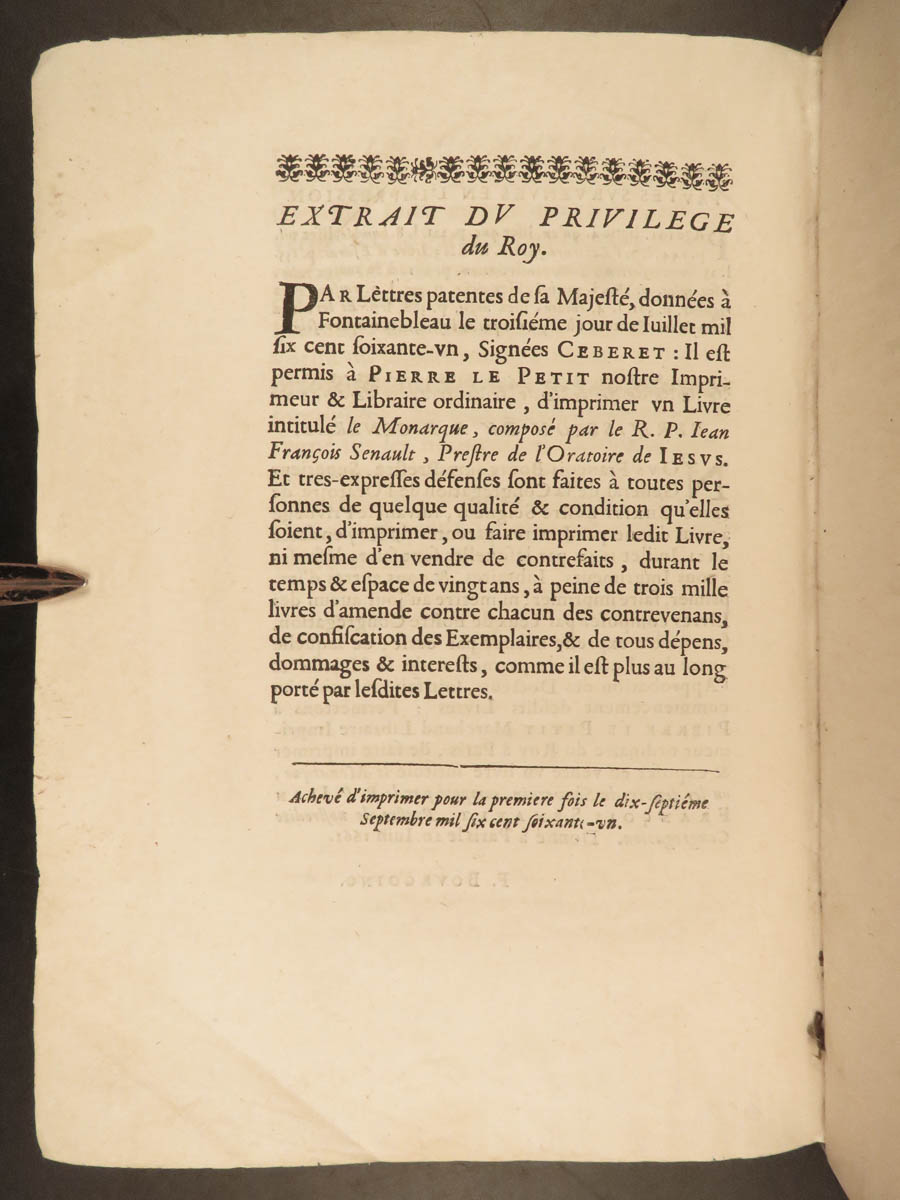 EXTRAIT DV PRIVILEGE
du Roy.
PAR Lèttres patentes de ſa Majeſté, données à
Fontainebleau le troiſiéme jour de Iuillet mil
ſix cent ſoixante-vn, Signées CEBERET : Il eſt
permis à PIERRE LE PETIT noſtre Impri-
meur & Libraire ordinaire, d'imprimer vn Livre
intitulé le Monarque, compoſé par le R. P. Iean
François Senault, Preſtre de l'Oratoire de IESVS.
Et tres-expreſſes défenſes ſont faites à toutes per-
ſonnes de quelque qualité & condition qu'elles
ſoient, d'imprimer, ou faire imprimer ledit Livre,
ni meſme d'en vendre de contrefaits, durant le
temps & eſpace de vingt ans, à peine de trois mille
livres d'amende contre chacun des contrevenans,
de confiſcation des Exemplaires, & de tous dépens,
dommages & intereſts, comme il eſt plus au long
porté par leſdites Lettres.
Achevé d'imprimer pour la premiere fois le dix-ſeptiéme
Septembre mil ſix cent ſoixante-vn.